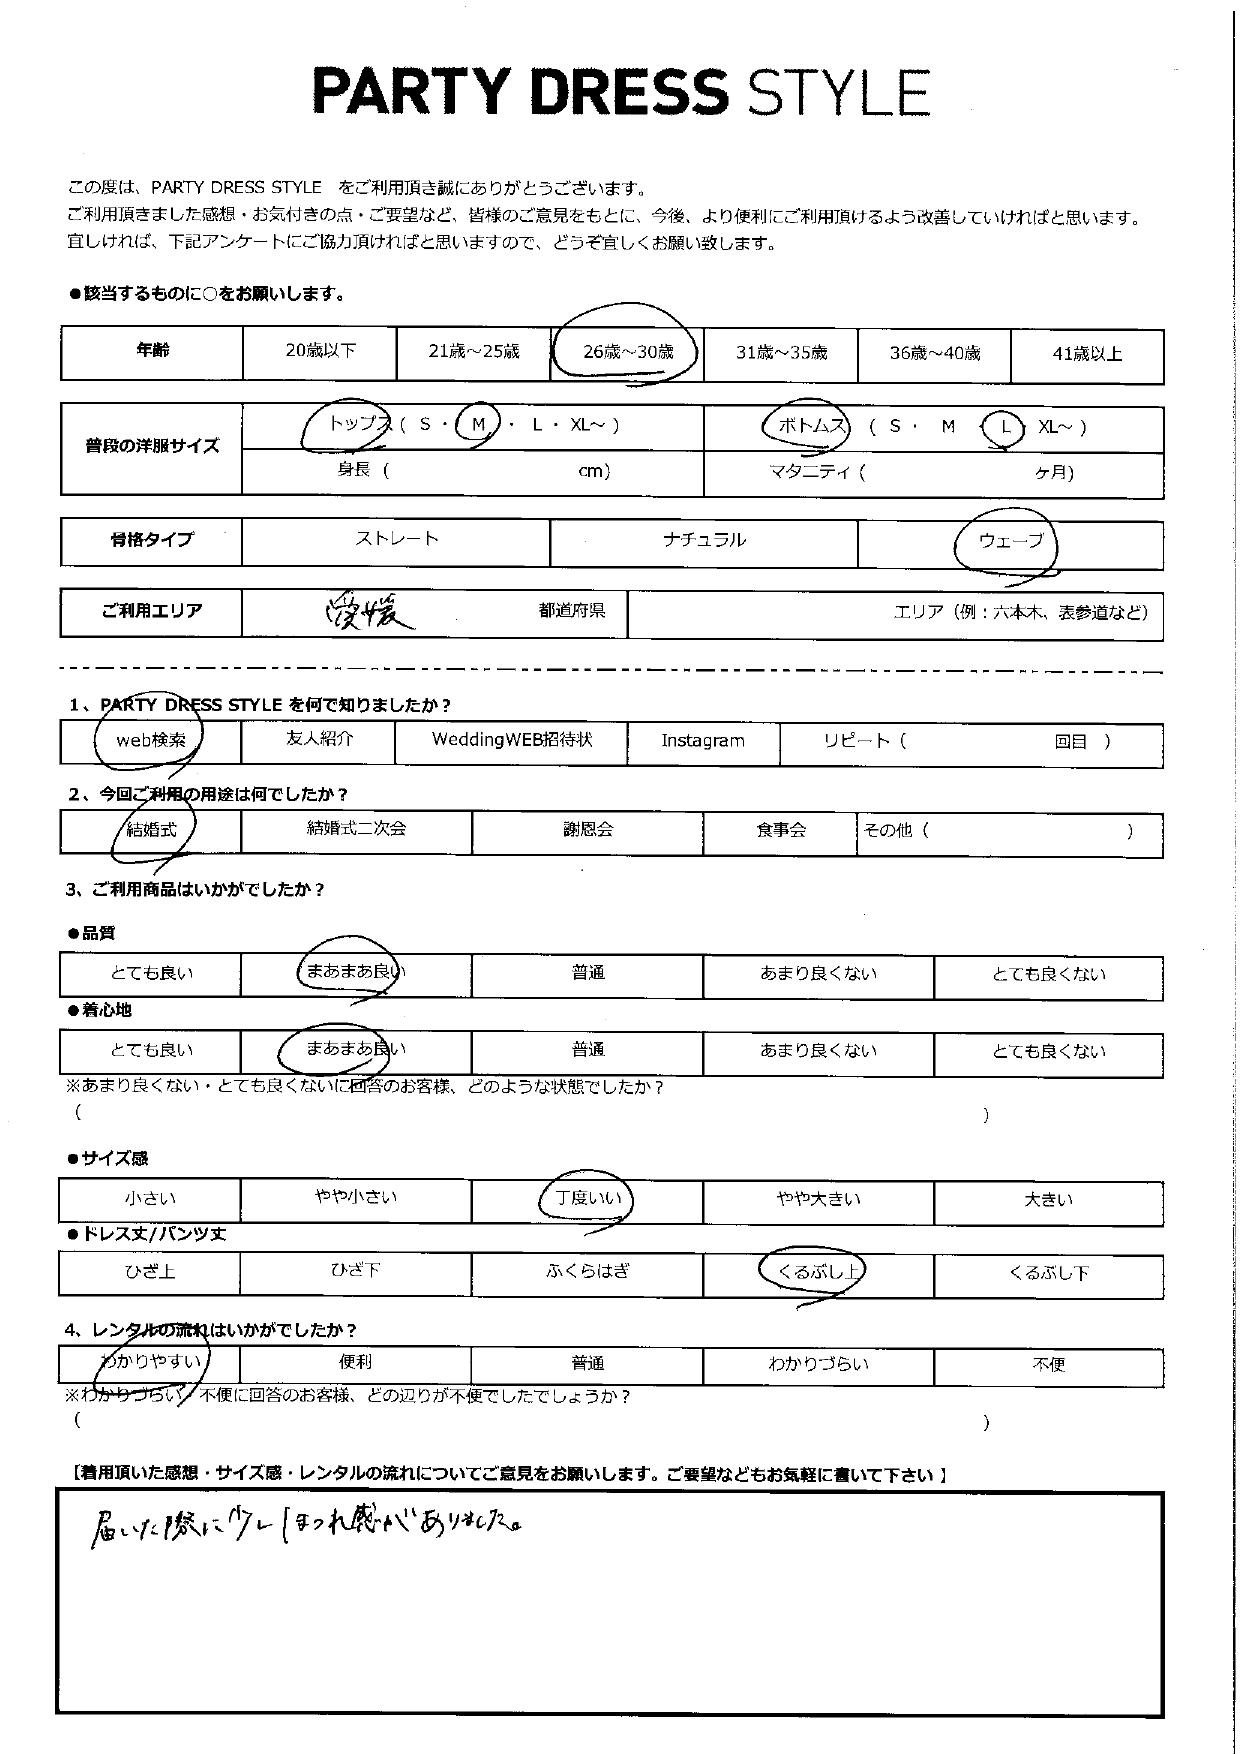 PARTY DRESS STYLE
この度は、PARTY DRESS STYLE　をご利用頂き誠にありがとうございます。
ご利用頂きました感想・お気付きの点・ご要望など、皆様のご意見をもとに、今後、より便利にご利用頂けるよう改善していければと思います。
宜しければ、下記アンケートにご協力頂ければと思いますので、どうぞ宜しくお願い致します。
●該当するものに○をお願いします。
年齢 20歳以下 21歳～25歳 26歳～30歳 31歳～35歳 36歳～40歳 41歳以上
普段の洋服サイズ トップス ( S ・ M ・ L ・ XL～ ) ボトムス ( S ・ M ・ L XL～ )
身長 ( cm) マタニティ ( ヶ月)
骨格タイプ ストレート ナチュラル ウェーブ
ご利用エリア 愛媛 都道府県 エリア（例：六本木、表参道など）
1、PARTY DRESS STYLE を何で知りましたか？
web検索 友人紹介 WeddingWEB招待状 Instagram リピート ( 回目 )
2、今回ご利用の用途は何でしたか？
結婚式 結婚式二次会 謝恩会 食事会 その他 ( )
3、ご利用商品はいかがでしたか？
●品質
とても良い まあまあ良い 普通 あまり良くない とても良くない
●着心地
とても良い まあまあ良い 普通 あまり良くない とても良くない
※あまり良くない・とても良くないに回答のお客様、どのような状態でしたか？
( )
●サイズ感
小さい やや小さい 丁度いい やや大きい 大きい
●ドレス丈/パンツ丈
ひざ上 ひざ下 ふくらはぎ くるぶし上 くるぶし下
4、レンタルの流れはいかがでしたか？
わかりやすい 便利 普通 わかりづらい 不便
※わかりづらい/不便に回答のお客様、どの辺りが不便でしたでしょうか？
( )
【着用頂いた感想・サイズ感・レンタルの流れについてご意見をお願いします。ご要望などもお気軽に書いて下さい 】
届いた際に少しほつれ感がありました。